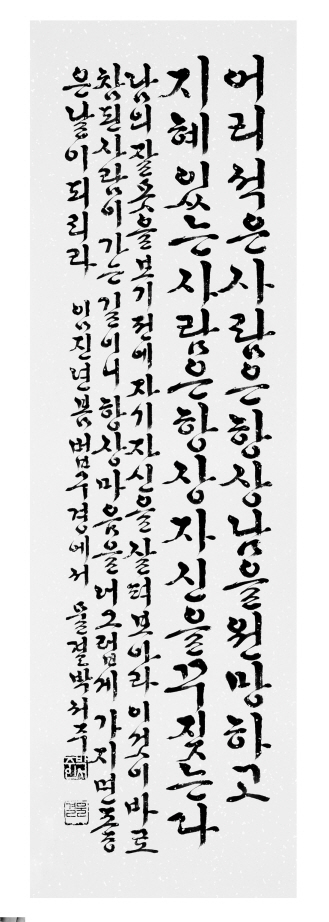 어리석은사람은항상남을원망하고
지혜있는사람은항상자신을꾸짖는다
남의잘못을보기전에자기자신을살펴보아라이것이바로
참된사람이가는길이니항상마음을너그럽게가지면좋
은날이되리라 임진년봄법구경에서